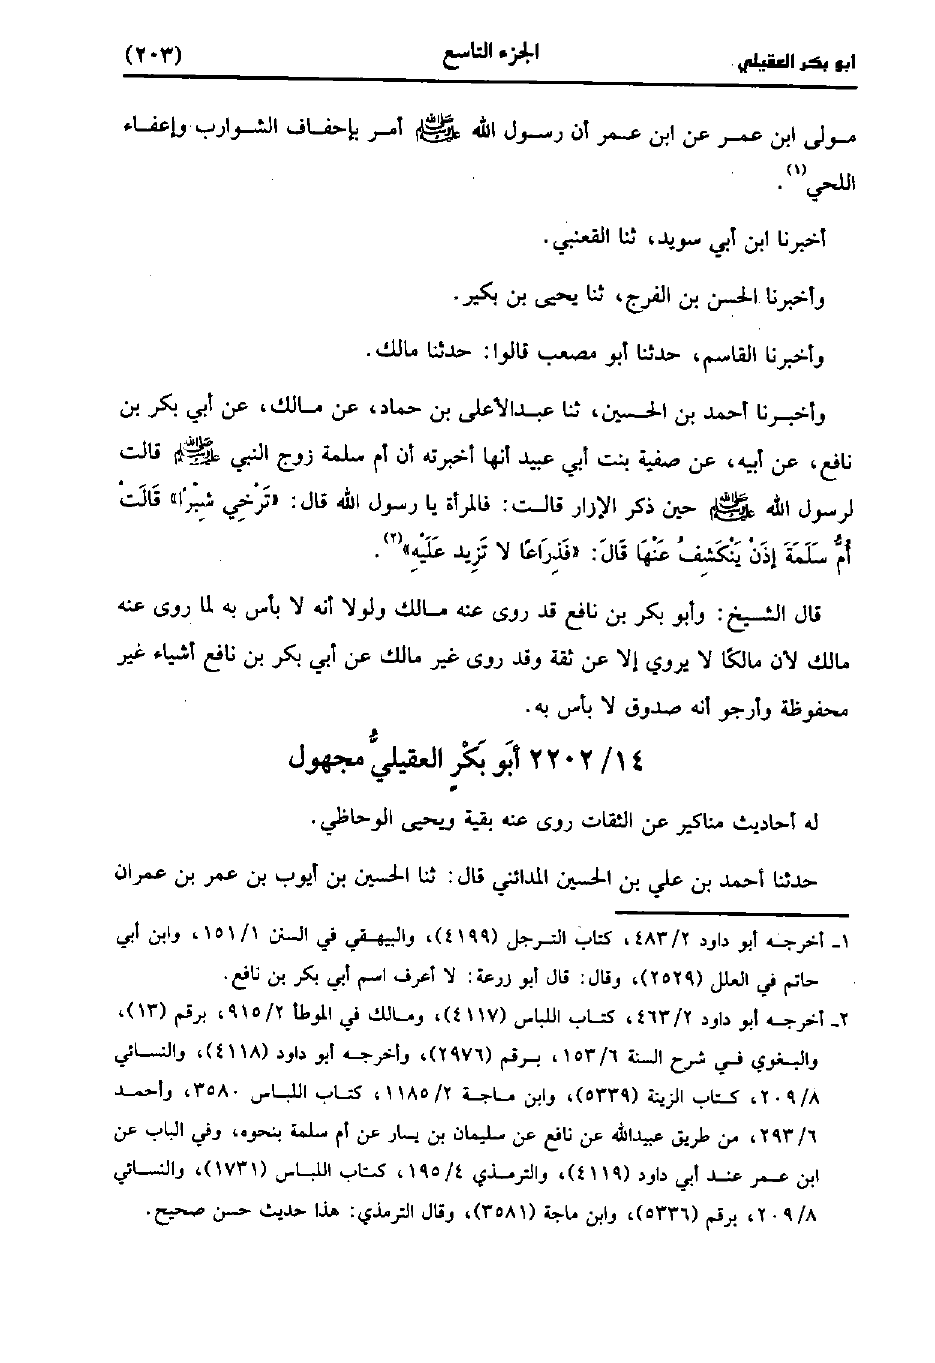 أبو بكر العقيلي الجزء التاسع (٢٠٣)
مولى ابن عمر عن ابن عمر أن رسول الله ﷺ أمر بإحفاف الشوارب وإعفاء
اللحي(١).
أخبرنا ابن أبي سويد، ثنا القعنبي.
وأخبرنا الحسن بن الفرج، ثنا يحيى بن بكير.
وأخبرنا القاسم، حدثنا أبو مصعب قالوا: حدثنا مالك.
وأخبرنا أحمد بن الحسين، ثنا عبدالأعلى بن حماد، عن مالك، عن أبي بكر بن
نافع، عن أبيه، عن صفية بنت أبي عبيد أنها أخبرته أن أم سلمة زوج النبي ﷺ قالت
لرسول الله ﷺ حين ذكر الإزار قالت: فالمرأة يا رسول الله قال: «تَرْخِي شِبْرًا» قَالَتْ
أُمُّ سَلَمَةَ إِذَنْ يَنْكَشِفُ عَنْهَا قَالَ: «فَذِرَاعًا لا تَزِيد عَلَيْهِ»(٢).
قال الشيخ: وأبو بكر بن نافع قد روى عنه مالك ولولا أنه لا بأس به لما روى عنه
مالك لأن مالكًا لا يروي إلا عن ثقة وقد روى غير مالك عن أبي بكر بن نافع أشياء غير
محفوظة وأرجو أنه صدوق لا بأس به.
١٤/ ٢٢٠٢ أَبَو بَكْرٍ العقيليُّ مجهول
له أحاديث مناكير عن الثقات روى عنه بقية ويحيى الوحاظي.
حدثنا أحمد بن علي بن الحسين المدائني قال: ثنا الحسين بن أيوب بن عمر بن عمران
١ـ أخرجه أبو داود ٤٨٣/٢، كتاب الترجل (٤١٩٩)، والبيهقي في السنن ١٥١/١، وابن أبي
حاتم في العلل (٢٥٢٩)، وقال: قال أبو زرعة: لا أعرف اسم أبي بكر بن نافع.
٢ـ أخرجه أبو داود ٤٦٣/٢، كتاب اللباس (٤١١٧)، ومالك في الموطأ ٩١٥/٢، برقم (١٣)،
والبغوي في شرح السنة ١٥٣/٦، برقم (٢٩٧٦)، وأخرجه أبو داود (٤١١٨)، والنسائي
٢٠٩/٨، كتاب الزينة (٥٣٣٩)، وابن ماجة ١١٨٥/٢، كتاب اللباس ٣٥٨٠، وأحمد
٢٩٣/٦، من طريق عبيدالله عن نافع عن سليمان بن يسار عن أم سلمة بنحوه، وفي الباب عن
ابن عمر عند أبي داود (٤١١٩)، والترمذي ١٩٥/٤، كتاب اللباس (١٧٣١)، والنسائي
٢٠٩/٨، برقم (٥٣٣٦)، وابن ماجة (٣٥٨١)، وقال الترمذي: هذا حديث حسن صحيح.